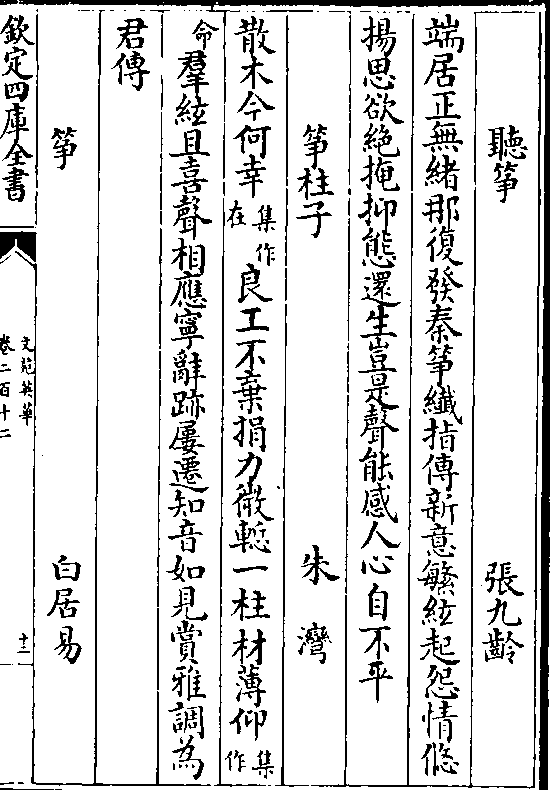 聽筝　張九齡
端居正無緒那復發秦筝纖指傳新意繁絃起怨情悠
揚思欲絶掩抑態還生豈是聲能感人心自不平
筝柱子　朱灣
散木今何幸集作在良工不棄捐力微慙一柱材薄仰集作
命羣絃且喜聲相應寧辭跡屢遷知音如見賞雅調為
君傳
筝　白居易
欽定四庫全書
文苑英華
卷二百十二
十三